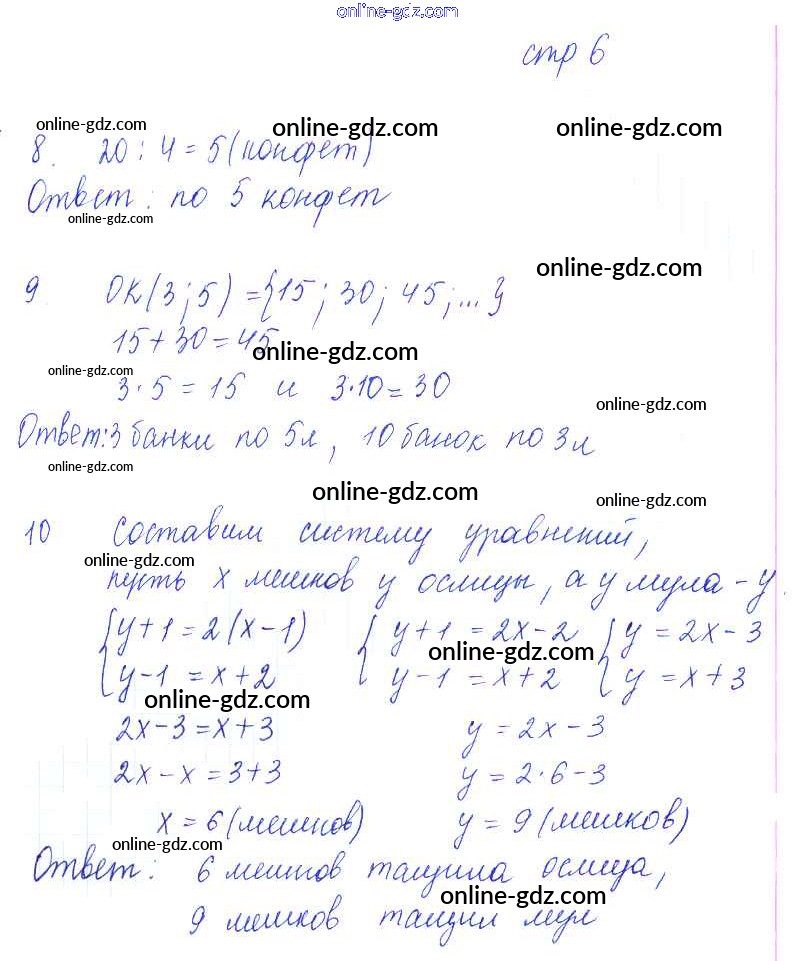 online-gdz.com
стр 6
online-gdz.com online-gdz.com online-gdz.com
8. 20 : 4 = 5 (конфет)
Ответ : по 5 конфет
online-gdz.com
online-gdz.com
9 ОК(3;5) = {15; 30; 45;...}
15+30=45
online-gdz.com
online-gdz.com
3·5 = 15 и 3·10=30
online-gdz.com
Ответ: 3 банки по 5л, 10 банок по 3л
online-gdz.com
online-gdz.com online-gdz.com
10 Составим систему уравнений,
online-gdz.com
пусть х мешков у ослицы, а у мула - у
{у+1=2(х-1) {у+1 = 2х-2 {у = 2х-3
online-gdz.com
{у-1 = х+2 {у-1 = х+2 {у = х+3
online-gdz.com
2х-3=х+3 у = 2х-3
2х-х=3+3 у = 2·6-3
х = 6 (мешков) у = 9 (мешков)
online-gdz.com
Ответ: 6 мешков тащила ослица,
online-gdz.com
9 мешков тащил мул